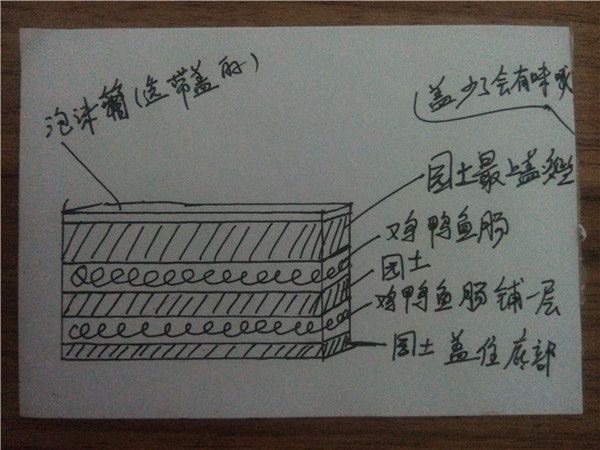 泡沫箱(选带盖的)
(盖少了会有味哦
园土最上盖
鸡鸭鱼肠
园土
鸡鸭鱼肠铺一层
园土盖住底部